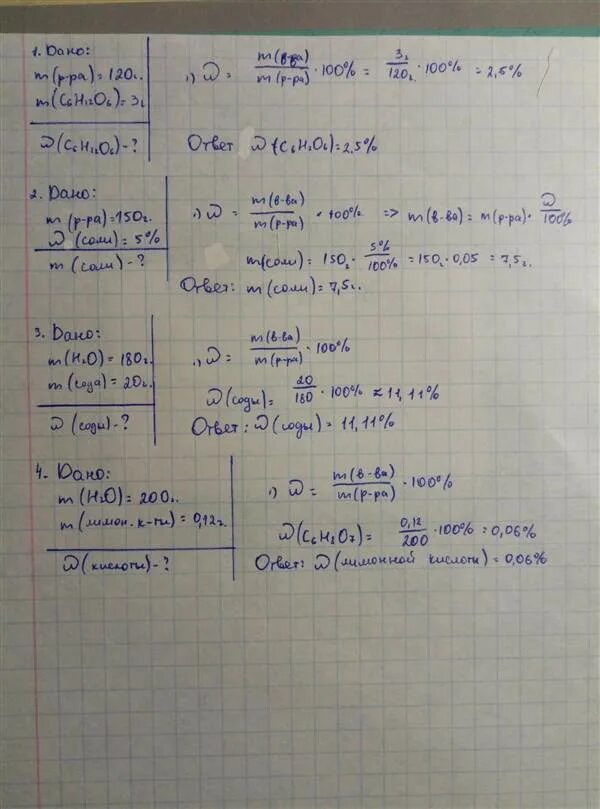 1. Дано:
m(р-ра)=120г.
m(C6H12O6)=3г
ω(C6H12O6)-?
1) ω = m(в-ва)/m(р-ра) · 100% = 3г/120г. · 100% = 2,5%
Ответ ω(C6H2O6)=2,5%
2. Дано:
m(р-ра)=150г.
ω(соли)=5%
m(соли)-?
1) ω = m(в-ва)/m(р-ра) · 100% => m(в-ва) = m(р-ра) · ω/100%
m(соли) = 150г · 5%/100% = 150г · 0,05 = 7,5г.
Ответ: m(соли)=7,5г.
3. Дано:
m(H2O)=180г.
m(сода)=20г.
ω(соды)-?
1) ω = m(в-ва)/m(р-ра) · 100%
ω(соды)= 20/180 · 100% ≈ 11,11%
Ответ: ω(соды)= 11,11%
4. Дано:
m(H2O)=200г.
m(лимон. к-ты)=0,12г.
ω(кислоты)-?
1) ω = m(в-ва)/m(р-ра) · 100%
ω(C6H2O7)= 0,12/200 · 100% = 0,06%
Ответ: ω(лимонной кислоты)=0,06%